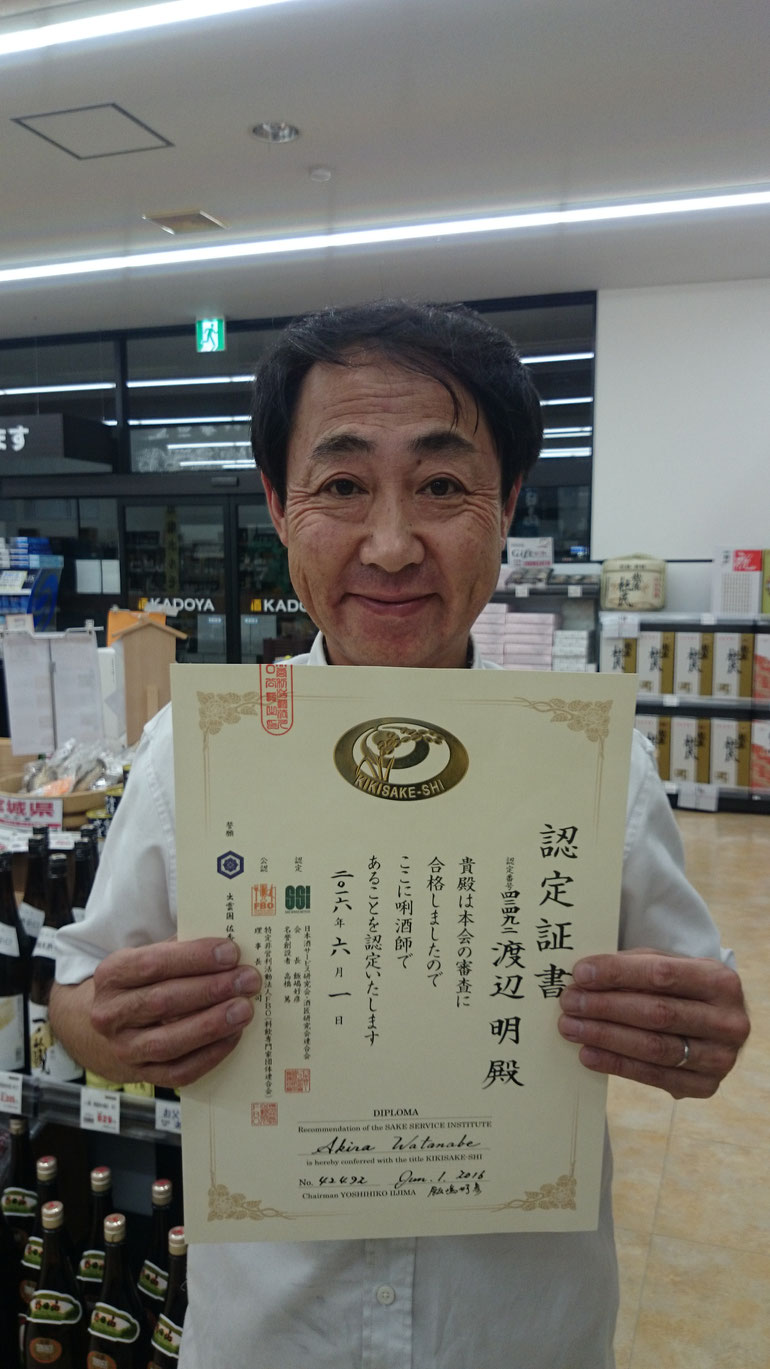 ます
KADOYA
KADO
Gift
宮城県
KIKISAKE-SHI
認定証書
認定番号 四二四九二
渡辺 明 殿
貴殿は本会の審査に
合格しましたので
ここに唎酒師で
あることを認定いたします
二〇一六年 六月 一日
認定
SSI
日本酒サービス研究会 酒匠研究会連合会
会長 飯嶋好彦
名誉創設者 高橋 篤
公認
FBO
特定非営利活動法人FBO(料飲専門家団体連合会)
理事長
誉願
出雲国 佐
DIPLOMA
Recommendation of the SAKE SERVICE INSTITUTE
Akira Watanabe
is hereby conferred with the title KIKISAKE-SHI
No. 42492 Jun. 1. 2016
Chairman YOSHIHIKO IIJIMA 飯嶋好彦